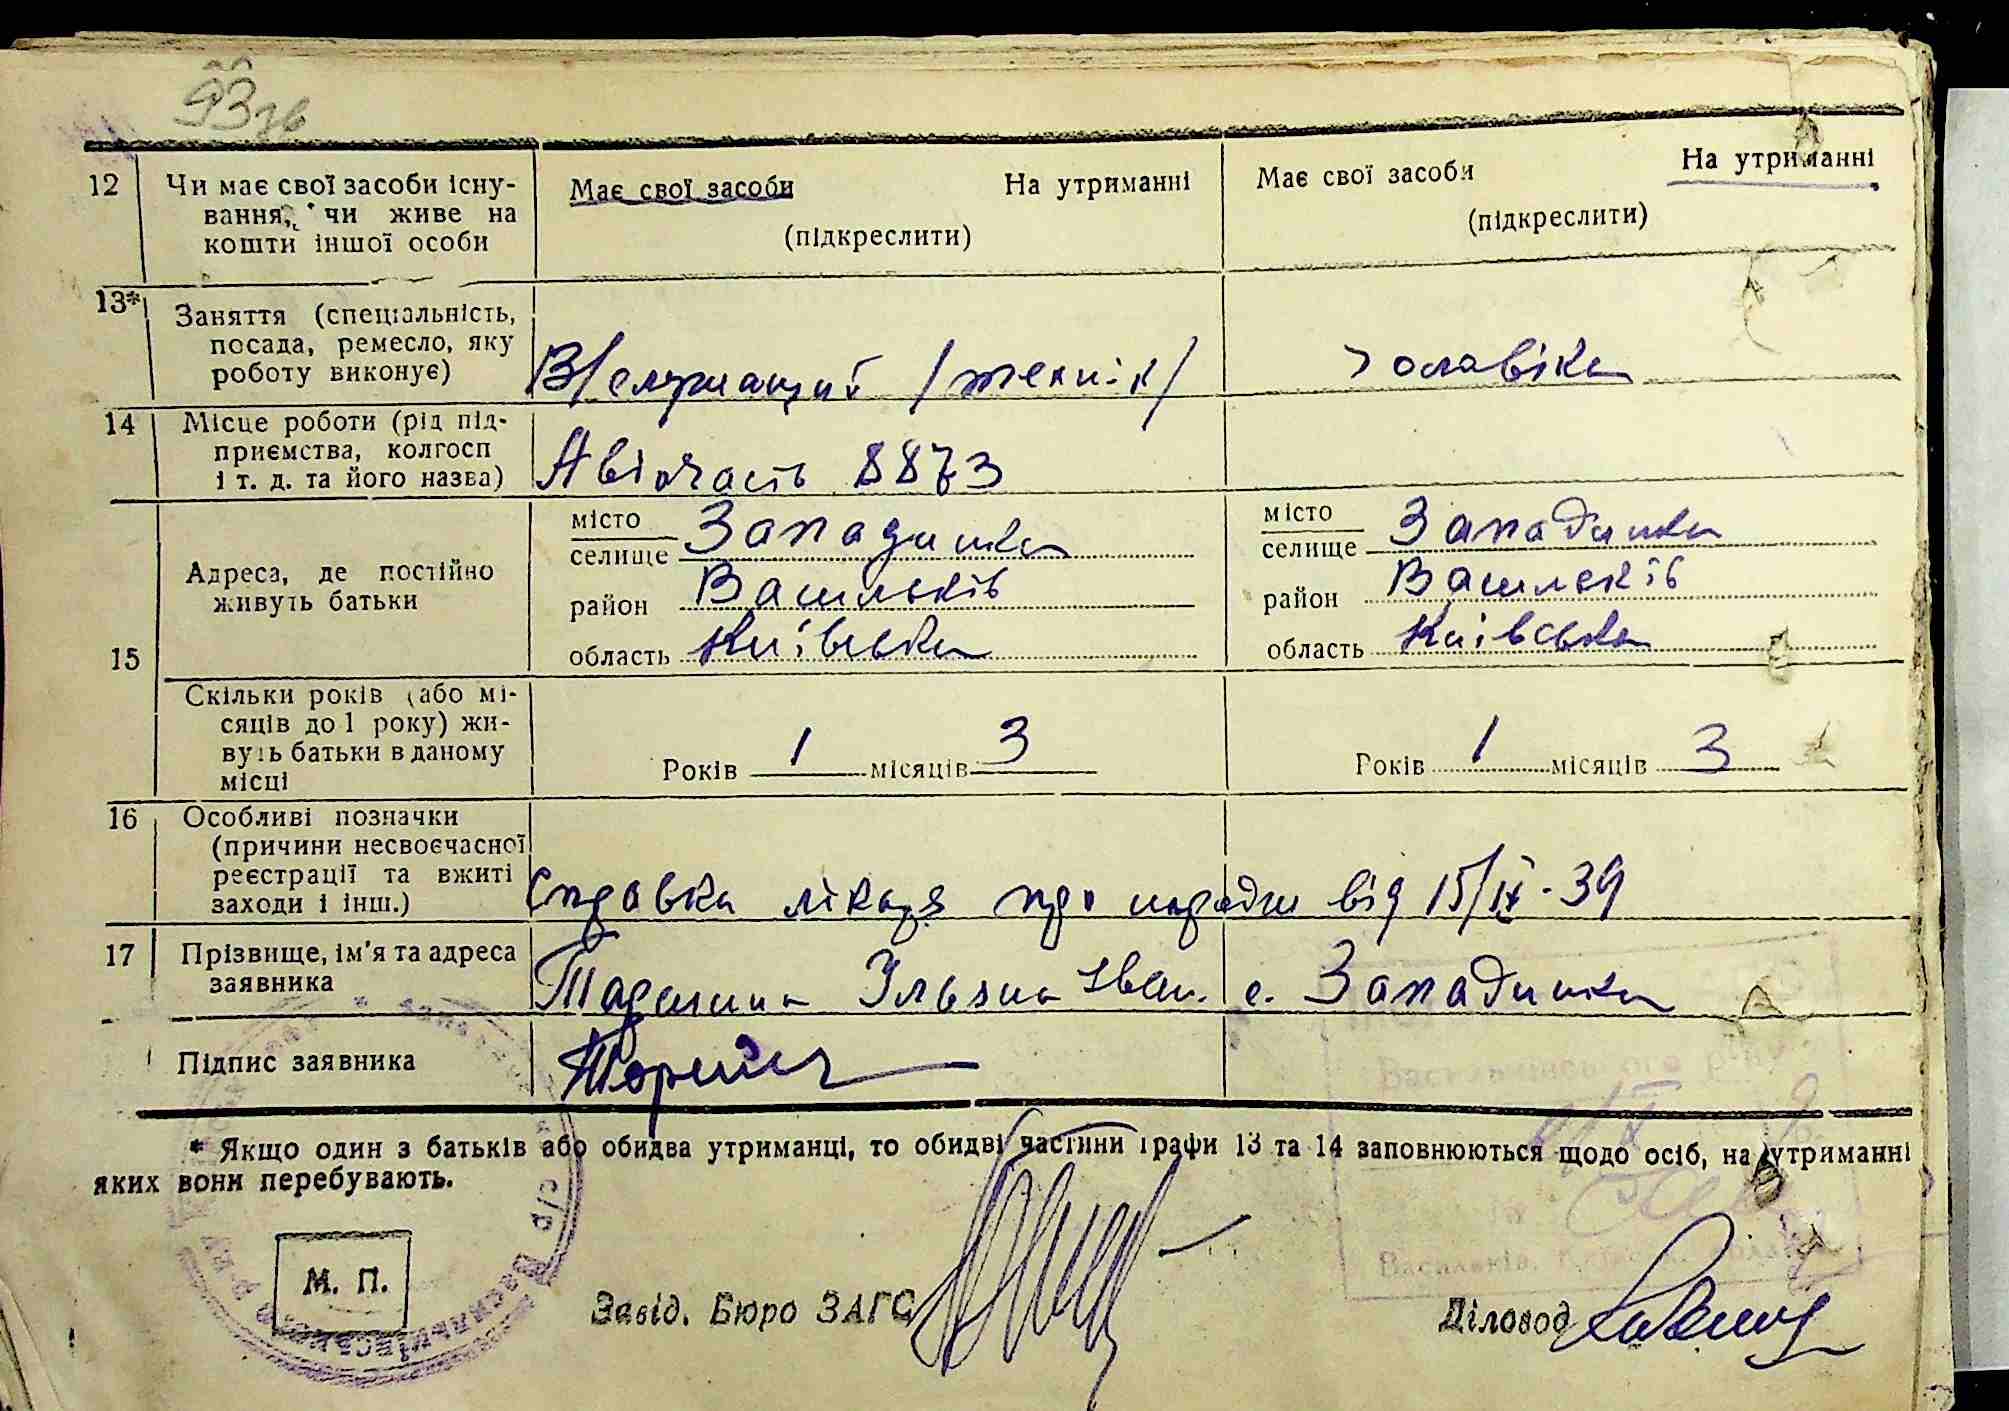 93зв
12 Чи має свої засоби існу-
вання, чи живе на
кошти іншої особи
Має свої засоби На утриманні
(підкреслити)
Має свої засоби На утриманні
(підкреслити)
13* Заняття (спеціальність,
посада, ремесло, яку
роботу виконує)
В/служащий /технік/
чоловіка
14 Місце роботи (рід під-
приємства, колгосп
і т. д. та його назва)
Авіочасть 8873
15 Адреса, де постійно
живуть батьки
місто
селище Западинка
район Васильків
область Київська
місто
селище Западинка
район Васильків
область Київська
Скільки років (або мі-
сяців до 1 року) жи-
вуть батьки в даному
місці
Років 1 місяців 3
Років 1 місяців 3
16 Особливі позначки
(причини несвоєчасної
реєстрації та вжиті
заходи і інш.)
Справка лікаря про народж від 15/IX-39
17 Прізвище, ім'я та адреса
заявника
Ульяна Іван. с. Западинка
Підпис заявника
* Якщо один з батьків або обидва утриманці, то обидві частини графи 13 та 14 заповнюються щодо осіб, на утриманні
яких вони перебувають.
М. П.
Завід. Бюро ЗАГС
Діловод